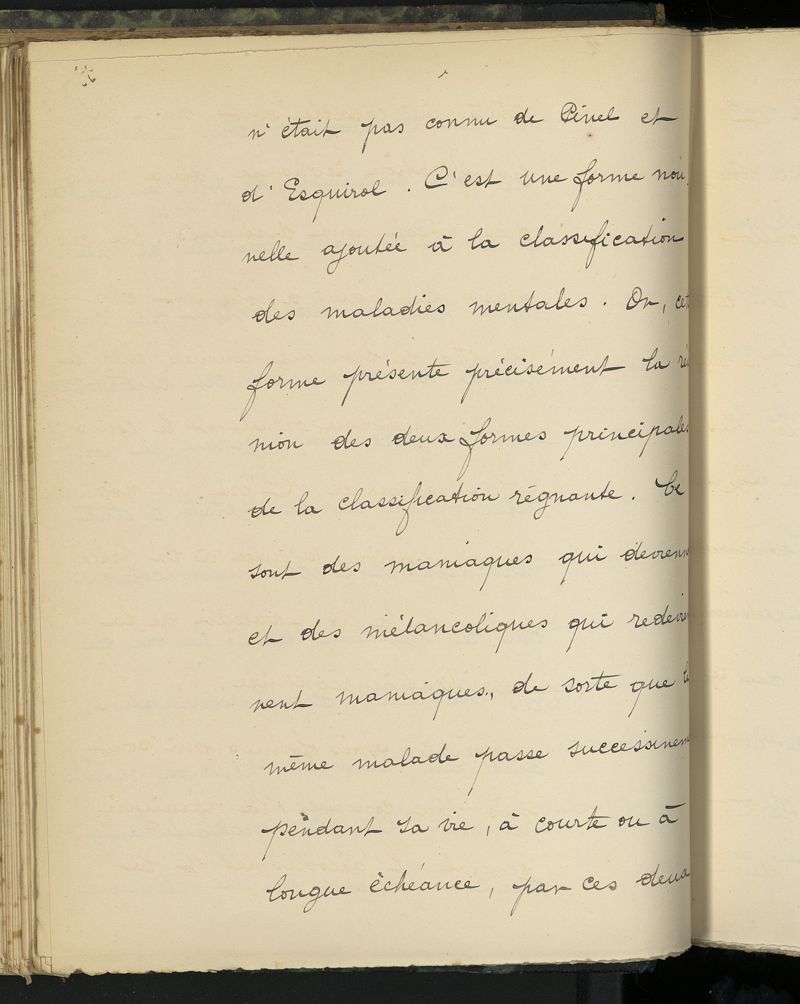 n'était pas connu de Pinel et
d'Esquirol. C'est une forme nou
velle ajoutée à la classification
des maladies mentales. Or, cet
forme présente précisément la ré
nion des deux formes principales
de la classification régnante. Ce
sont des maniaques qui devienn
et des mélancoliques qui redevien
nent maniaques, de sorte que le
même malade passe successivem
pendant sa vie, à courte ou à
longue échéance, par ces deux